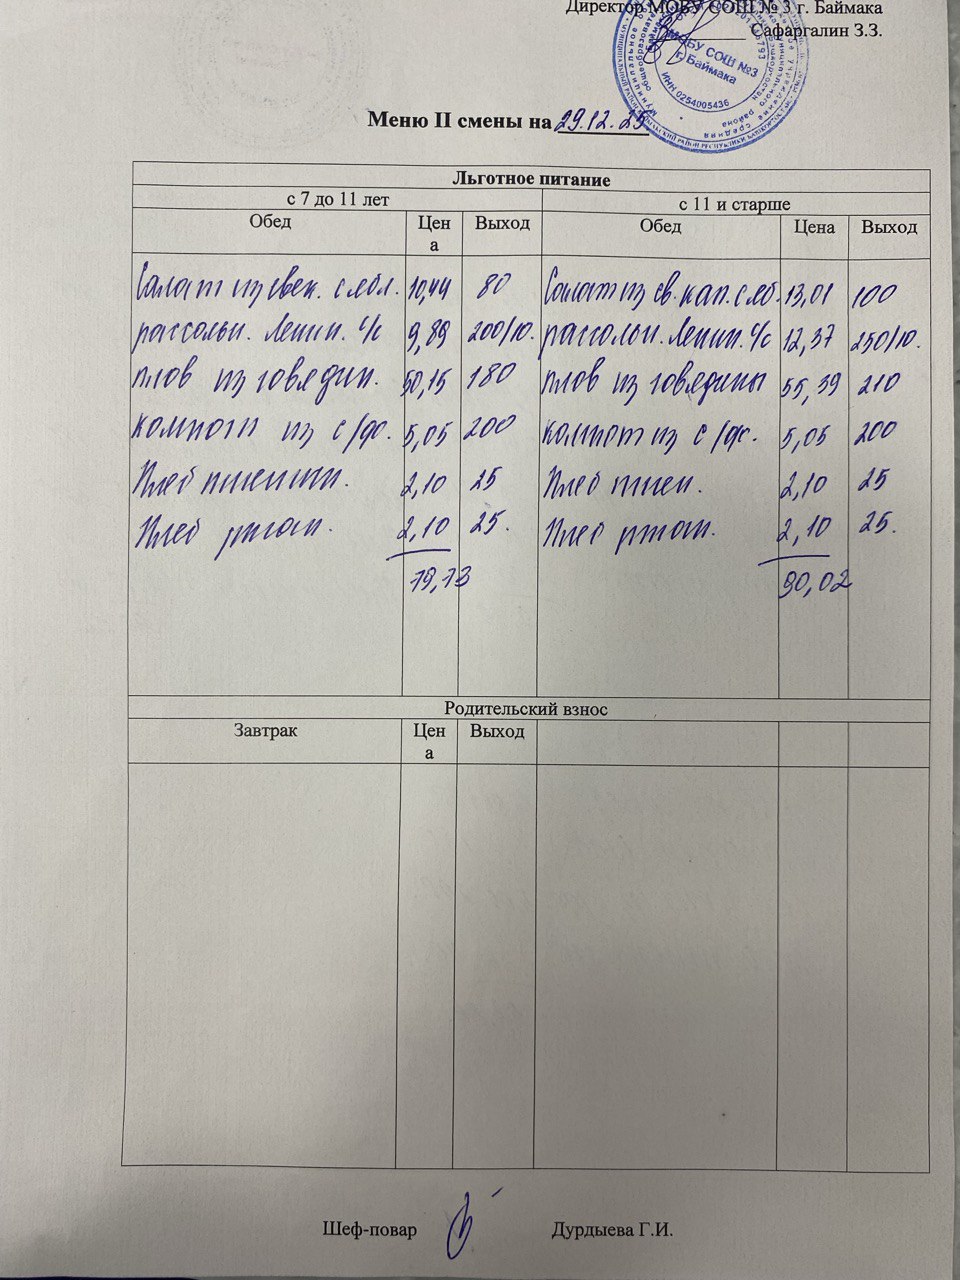 Директор МОБУ СОШ № 3 г. Баймака
Сафаргалин З.З.
МОБУ СОШ №3
г. Баймака
ИНН 0254005436
Меню II смены на 29.12.25
Льготное питание
с 7 до 11 лет с 11 и старше
Обед Цена Выход Обед Цена Выход
Салат из свеж. с ябл. 10,44 80 Салат из св. кап. с яб. 13,01 100
рассольн. Ленин. с/с 9,89 200/10. рассольн. Ленин. с/с 12,37 250/10.
плов из говядин. 50,15 180 плов из говядины 55,39 210
компот из с/ф. 5,05 200 компот из с/ф. 5,05 200
Хлеб пшенич. 2,10 25 Хлеб пшен. 2,10 25
Хлеб ржан. 2,10 25. Хлеб ржан. 2,10 25.
79,73 90,02
Родительский взнос
Завтрак Цена Выход
Шеф-повар Дурдыева Г.И.